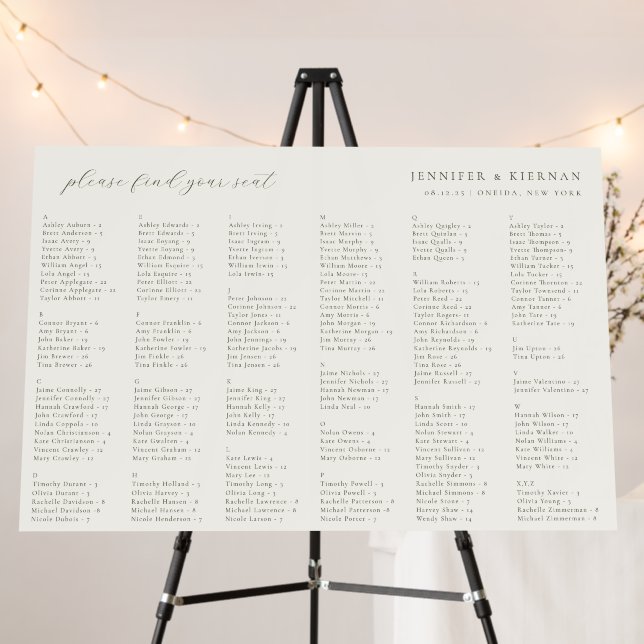 please find your seat
JENNIFER & KIERNAN
08.12.25 | ONEIDA, NEW YORK
A
Ashley Auburn - 2
Brett Anderson - 5
Isaac Avery - 9
Yvette Avery - 9
Ethan Abbott - 3
William Angel - 15
Lola Angel - 15
Peter Applegate - 2
Corinne Applegate - 2
Taylor Abbott - 11
B
Connor Bryant - 6
Amy Bryant - 6
John Baker - 19
Katherine Baker - 19
Jim Brewer - 26
Tina Brewer - 26
C
Jaime Connolly - 27
Jennifer Connolly - 27
Hannah Crawford - 17
John Crawford - 17
Linda Coppola - 10
Nolan Christianson - 4
Kate Christianson - 4
Vincent Crawley - 12
Mary Crawley - 12
D
Timothy Durant - 3
Olivia Durant - 3
Rachelle Davidson - 8
Michael Davidson - 8
Nicole Dubois - 7
E
Ashley Edwards - 2
Brett Edwards - 5
Isaac Eoyang - 9
Yvette Eoyang - 9
Ethan Edmond - 3
William Esquire - 15
Lola Esquire - 15
Peter Elliott - 2
Corinne Elliott - 2
Taylor Emery - 11
F
Connor Franklin - 6
Amy Franklin - 6
John Fowler - 19
Katherine Fowler - 19
Jim Finkle - 26
Tina Finkle - 26
G
Jaime Gibson - 27
Jennifer Gibson - 27
Hannah George - 17
John George - 17
Linda Grayson - 10
Nolan Grayson - 4
Kate Gwalton - 4
Vincent Graham - 12
Mary Graham - 12
H
Timothy Holland - 3
Olivia Harvey - 3
Rachelle Hansen - 8
Michael Hansen - 8
Nicole Henderson - 7
I
Ashley Irving - 2
Brett Irving - 5
Isaac Ingram - 9
Yvette Ingram - 9
Ethan Iverson - 3
William Irwin - 15
Lola Irwin - 15
J
Peter Johnson - 2
Corinne Johnson - 2
Taylor Jones - 11
Connor Jackson - 6
Amy Jackson - 6
John Jennings - 19
Katherine Jacobs - 19
Jim Jensen - 26
Tina Jensen - 26
K
Jaime King - 27
Jennifer King - 27
Hannah Kelly - 17
John Kelly - 17
Linda Kennedy - 10
Nolan Kennedy - 4
L
Kate Lewis - 4
Vincent Lewis - 12
Mary Lee - 12
Timothy Long - 3
Olivia Long - 3
Rachelle Lawrence - 8
Michael Lawrence - 8
Nicole Larson - 7
M
Ashley Miller - 2
Brett Martin - 5
Isaac Murphy - 9
Yvette Murphy - 9
Ethan Matthews - 3
William Moore - 15
Lola Moore - 15
Peter Martin - 2
Corinne Martin - 2
Taylor Mitchell - 11
Connor Morris - 6
Amy Morris - 6
John Morgan - 19
Katherine Morgan - 19
Jim Murray - 26
Tina Murray - 26
N
Jaime Nichols - 27
Jennifer Nichols - 27
Hannah Newman - 17
John Newman - 17
Linda Neal - 10
O
Nolan Owens - 4
Kate Owens - 4
Vincent Osborne - 12
Mary Osborne - 12
P
Timothy Powell - 3
Olivia Powell - 3
Rachelle Patterson - 8
Michael Patterson - 8
Nicole Porter - 7
Q
Ashley Quigley - 2
Brett Quinlan - 5
Isaac Qualls - 9
Yvette Qualls - 9
Ethan Queen - 3
R
William Roberts - 15
Lola Roberts - 15
Peter Reed - 2
Corinne Reed - 2
Taylor Rogers - 11
Connor Richardson - 6
Amy Richardson - 6
John Reynolds - 19
Katherine Reynolds - 19
Jim Rose - 26
Tina Rose - 26
Jaime Russell - 27
Jennifer Russell - 27
S
Hannah Smith - 17
John Smith - 17
Linda Scott - 10
Nolan Stewart - 4
Kate Stewart - 4
Vincent Sullivan - 12
Mary Sullivan - 12
Timothy Snyder - 3
Olivia Snyder - 3
Rachelle Simmons - 8
Michael Simmons - 8
Nicole Stone - 7
Harvey Shaw - 14
Wendy Shaw - 14
T
Ashley Taylor - 2
Brett Thomas - 5
Isaac Thompson - 9
Yvette Thompson - 9
Ethan Turner - 3
William Tucker - 15
Lola Tucker - 15
Corinne Thornton - 2
Taylor Townsend - 11
Connor Tanner - 6
Amy Tanner - 6
John Tate - 19
Katherine Tate - 19
U
Jim Upton - 26
Tina Upton - 26
V
Jaime Valentino - 27
Jennifer Valentino - 27
W
Hannah Wilson - 17
John Wilson - 17
Linda Walker - 10
Nolan Williams - 4
Kate Williams - 4
Vincent White - 12
Mary White - 12
X,Y,Z
Timothy Xavier - 3
Olivia Young - 3
Rachelle Zimmerman - 8
Michael Zimmerman - 8